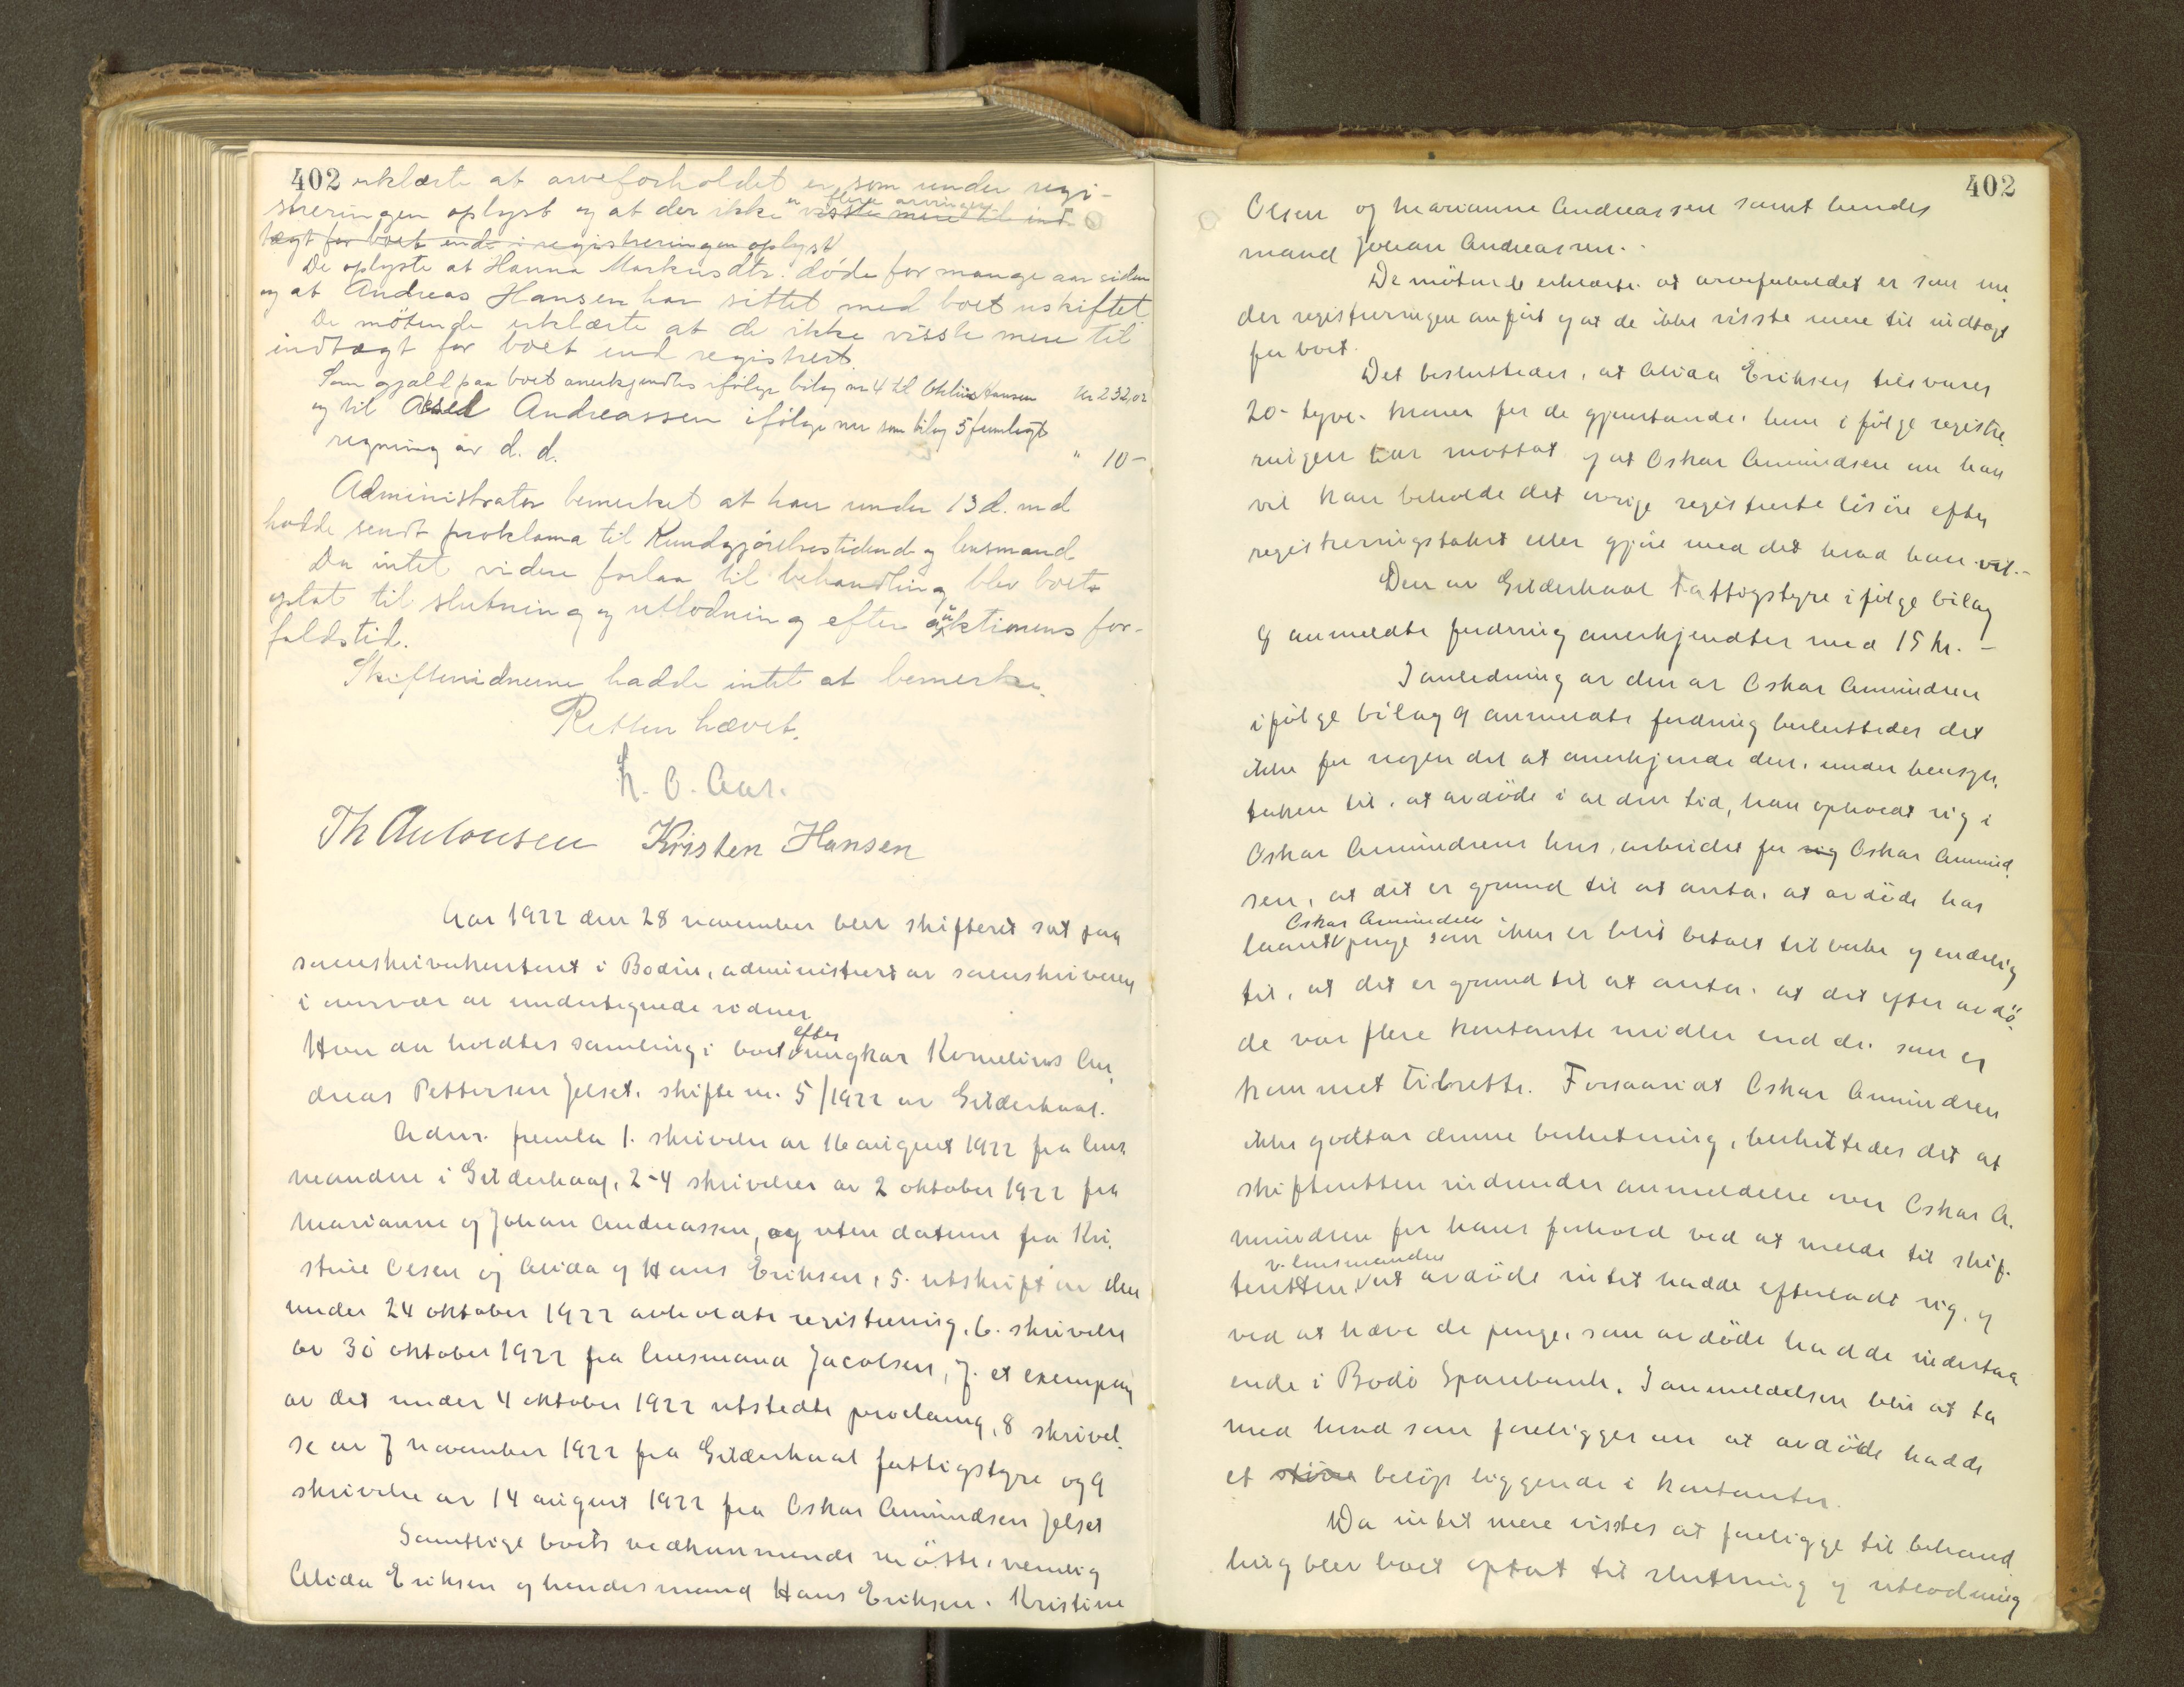 402 erklærte at arveforholdet er som under regi-
streringen oplyst og at der ikke er flere arvinger visste mere til ind
tægt for boet end i registreringen oplyst
De oplyste at Hanna Markusdtr. døde for mange aar siden
og at Andreas Hansen har sittet med boet uskiftet
De møtende erklærte at de ikke visste mere til
indtægt for boet end registrert.
Som gjæld paa boet anerkjendtes ifølge bilag nr 4 til Hansen Kr 232,02
og til Andreassen ifølge nu som bilag 5 fremlagt
regning av d. d. " 10-
Administrator bemerket at han under 13 d. md
hadde sendt proklama til Kundgjørelsestidende og lensmand
Da intet videre forlaa til behandling blev boet
optat til slutning og utlodning efter auktionens for-
faldstid.
Skiftevidnerne hadde intet at bemerke.
Retten hævet.
K. O. Aar.
Th Antonsen Kristen Hansen
Aar 1922 den 28 november blev skifteret sat paa
sorenskriverkontoret i Bodin, administrert av sorenskriveren
i nærvær av undertegnede vidner
Hvor da holdtes samling i boet efter ungkar Kornelius An
dreas Pettersen Jelset. skifte nr. 5/1922 av Gildeskaal.
Adm. fremla 1. skrivelse av 16 august 1922 fra lens
manden i Gildeskaal, 2-4 skrivelser av 2 oktober 1922 fra
Marianne og Johan Andreassen, og uten datum fra Kri
stine Olsen og Alida og Hans Eriksen, 5. utskrift av den
under 24 oktober 1922 avholdte registrering, 6. skrivelse
av 30 oktober 1922 fra lensmand Jacobsen, 7. et exemplar
av det under 4 oktober 1922 utstedte proclama, 8 skrivel
se av 7 november 1922 fra Gildeskaal fattigstyre og 9
skrivelse av 14 august 1922 fra Oskar Amundsen Jelset
Samtlige boets vedkommende møtte, nemlig
Alida Eriksen og hendes mand Hans Eriksen. Kristine
402
Olsen og Marianne Andreassen samt hendes
mand Johan Andreassen.
De møtende erklærte at arveforholdet er som un
der registreringen anført og at de ikke visste mere til indtægt
for boet.
Det besluttedes, at Alida Eriksen tilsvarer
20- tyve- kroner for de gjenstande, hun i følge registre
ringen har mottat og at Oskar Amundsen om han
vil kan beholde det øvrige registrerte løsøre efter
registreringstakst eller gjøre med det hvad han vil.-
Den av Gildeskaal Fattigstyre i følge bilag
8 anmeldte fordring anerkjendtes med 15 kr. -
I anledning av den av Oskar Amundsen
ifølge bilag 9 anmeldte fordring besluttedes det
ikke for nogen del at anerkjende den, under hensyn
taken til, at avdøde i al den tid, han opholdt sig i
Oskar Amundsens hus, arbeidet for sig Oskar Amund
sen, at det er grund til at anta, at avdøde har
laant Oskar Amundsen penge som ikke er blit betalt tilbake og endelig
til, at det er grund til at anta, at det efter avdø
de var flere kontante midler end de som er
kommet tilrette. Forsaavidt Oskar Amundsen
ikke godtar denne beslutning, besluttedes det at
skifteretten indsender anmeldelse over Oskar A.
mundsen for hans forhold ved at melde til skif.
teretten v. lensmanden at avdøde intet hadde efterladt sig, og
ved at hæve de penge, som avdøde hadde indestaa
ende i Bodø Sparebank. I anmeldelsen blir at ta
med hvad som foreligger om at avdøde hadde
et større beløp liggende i kontanter.
Da intet mere visstes at foreligge til behand
ling blev boet optat til slutning og utlodning